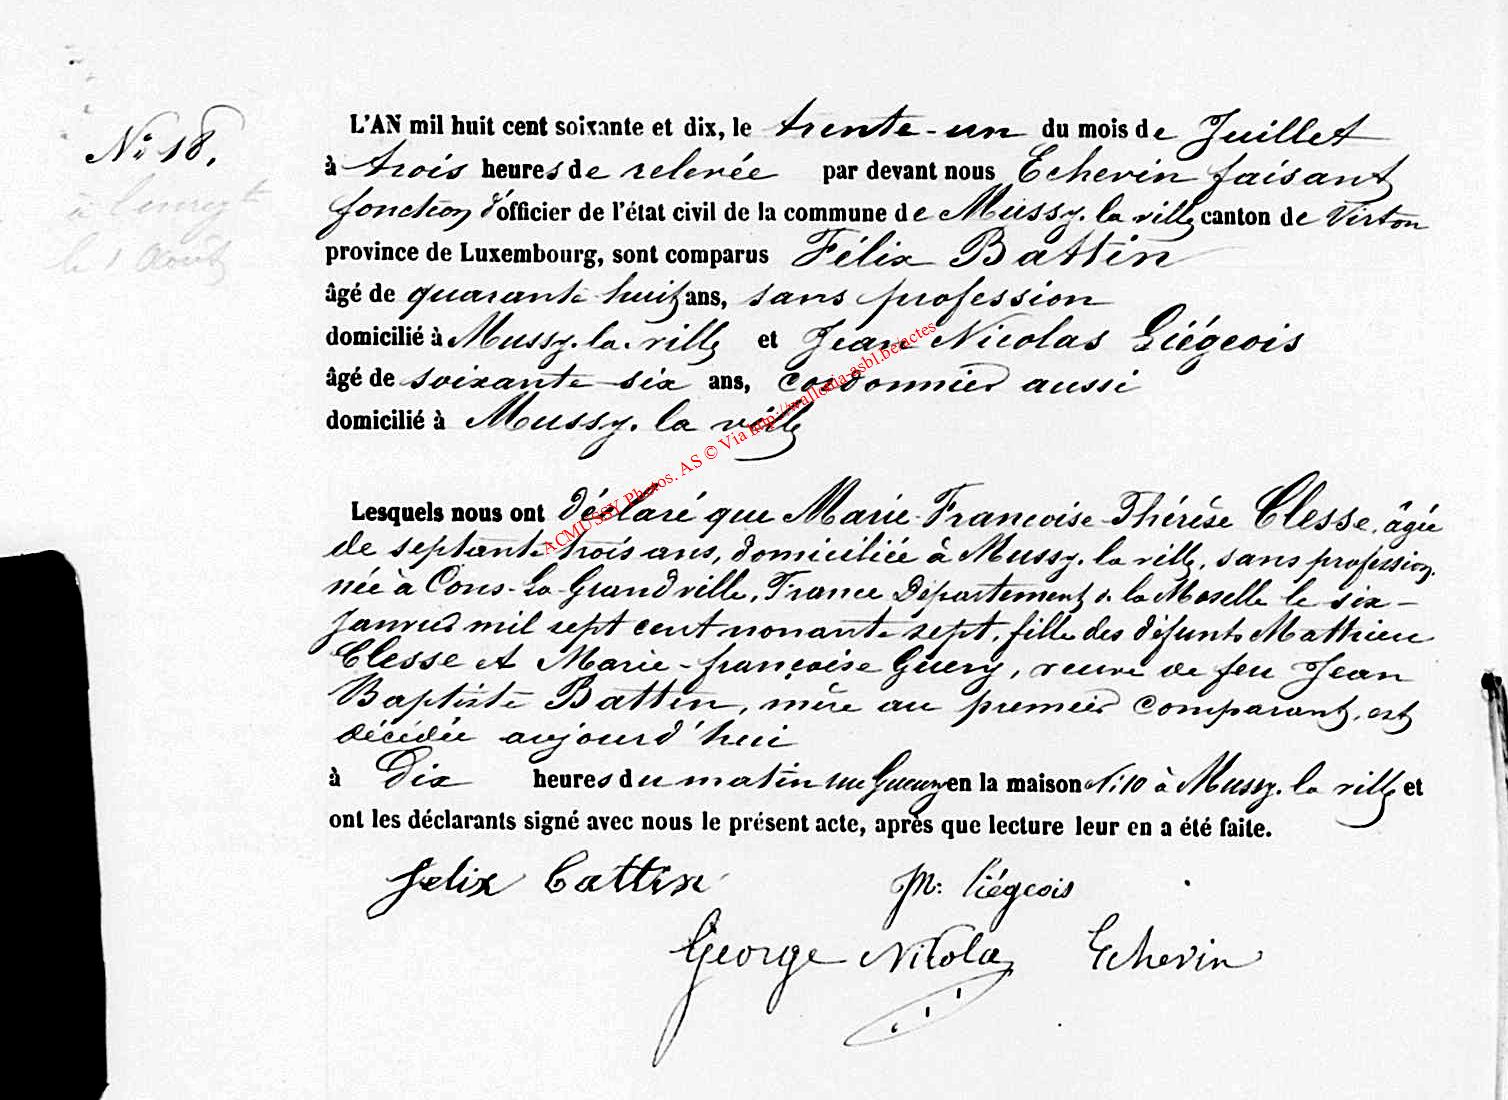 N° 18.
à l'enregt
le 1 Août
L'AN mil huit cent soixante et dix, le trente-un du mois de Juillet
à trois heures de relevée par devant nous Echevin faisant
fonction d'officier de l'état civil de la commune de Mussy-la-ville canton de Virton
province de Luxembourg, sont comparus Félix Battin
âgé de quarante huit ans, sans profession
domicilié à Mussy-la-ville et Jean Nicolas Liégeois
âgé de soixante-six ans, cordonnier aussi
domicilié à Mussy-la ville
ACMUSSY Photos. AS © Via http://wallonia-asbl.be/actes
Lesquels nous ont déclaré que Marie-Françoise-Thérèse Clesse, âgée
de septante trois ans, domiciliée à Mussy-la ville, sans profession,
née à Cons-La-Grandville, France Département de la Moselle le six
Janvier mil sept cent nonante sept, fille des défunts Matthieu
Clesse et Marie-françoise Guery, veuve de feu Jean
Baptiste Battin, mère au premier comparant, est
décédée aujourd'hui
à Dix heures du matin rue en la maison N° 10 à Mussy-la ville et
ont les déclarants signé avec nous le présent acte, après que lecture leur en a été faite.
felix battin
N: liégeois
George Nicolas Echevin